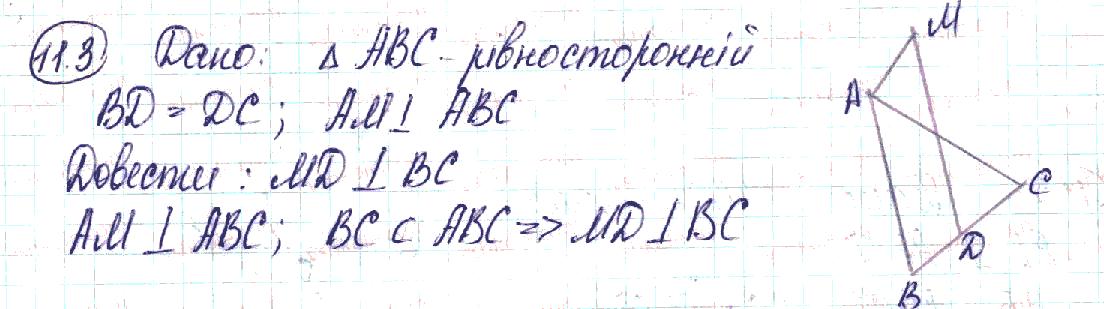 11.3 Дано: △ ABC - рівносторонній
BD = DC; AM ⊥ ABC
Довести: MD ⊥ BC
AM ⊥ ABC; BC ⊂ ABC => MD ⊥ BC
M
A
C
D
B